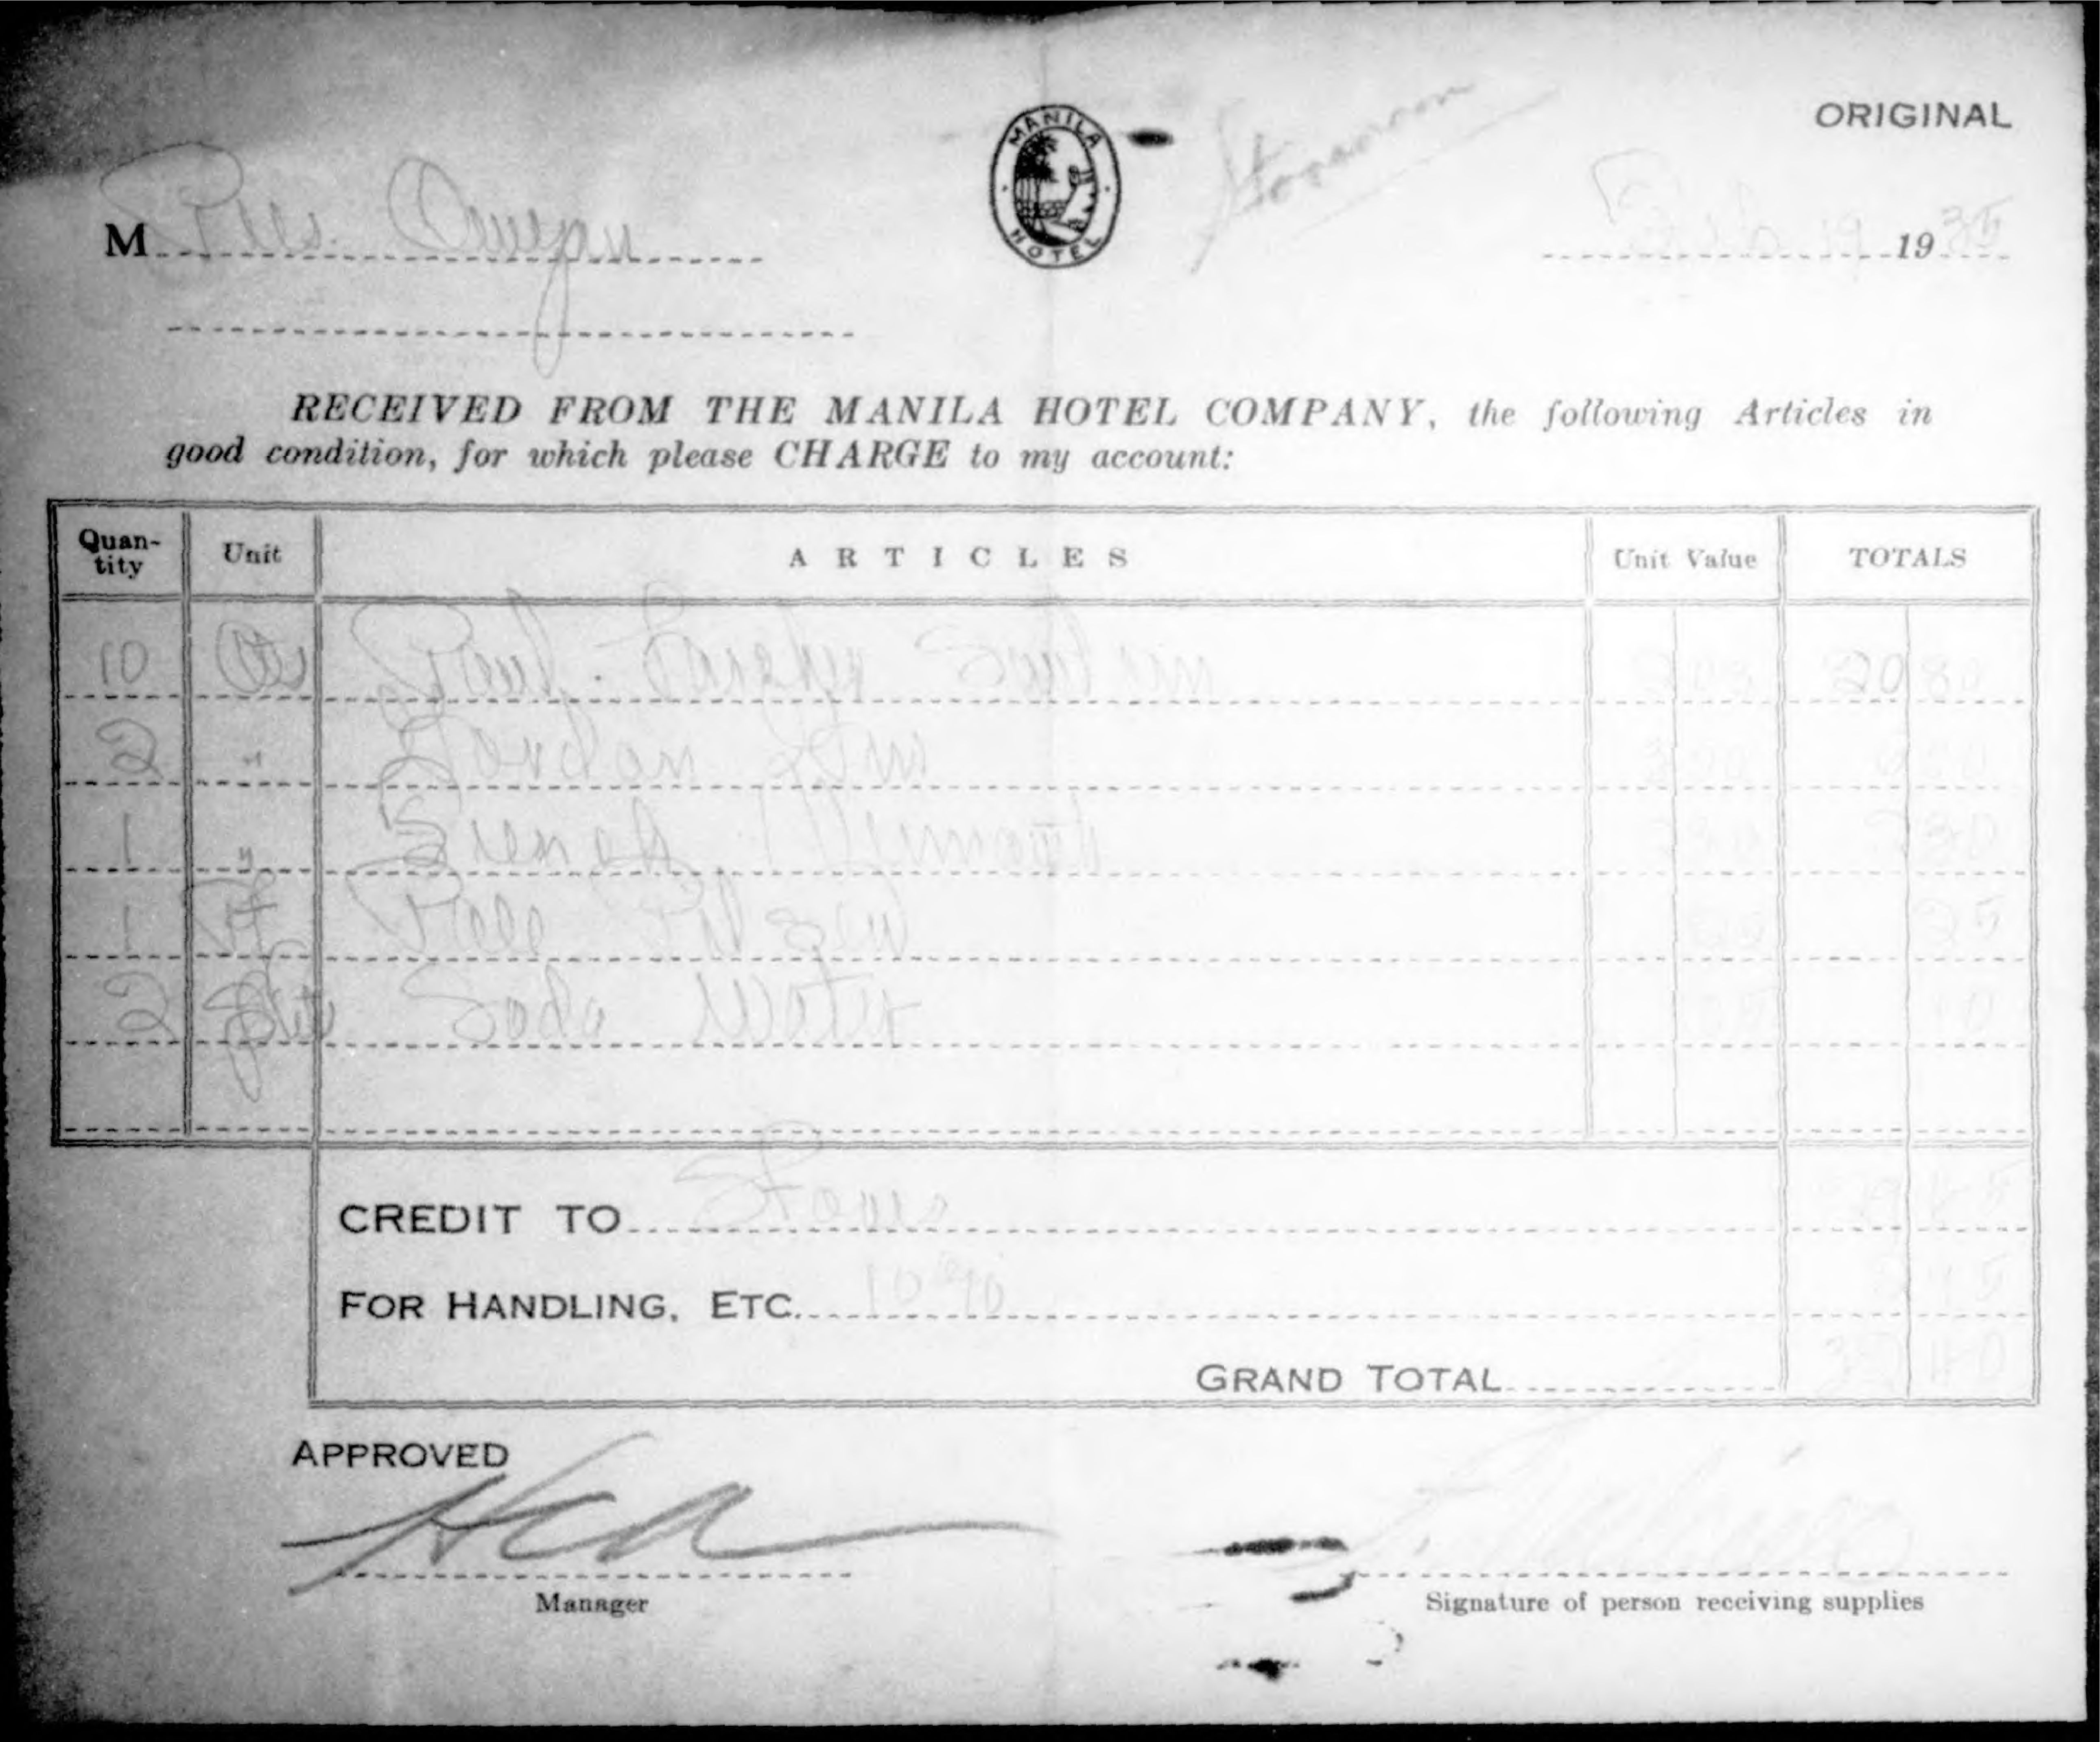 ORIGINAL
MANILA HOTEL
Storeroom
M Pres. Quezon
Feb. 19 1935
RECEIVED FROM THE MANILA HOTEL COMPANY, the following Articles in
good condition, for which please CHARGE to my account:
Quan-
tity Unit ARTICLES Unit Value TOTALS
10 20 80
2 " Gordon Gin
1 " French 2 30
1 Pt Pale Pilsen 25 25
2 Soda Water 05 10
CREDIT TO Stores
FOR HANDLING, ETC. 10% 2 95
GRAND TOTAL 32 40
APPROVED
Manager
Signature of person receiving supplies